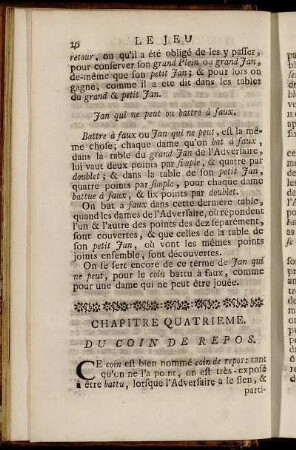 LE JEU
retour, ou qu'il a été obligé de les y passer,
pour conserver son grand Plein ou grand Jan,
de-même que son petit Jan; & pour lors on
gagne, comme il a été dit dans les tables
du grand & petit Jan.
Jan qui ne peut ou battre à faux.
Battre à faux ou Jan qui ne peut, est la mê-
me chose; chaque dame qu'on bat à faux,
dans la table du grand Jan de l'Adversaire,
lui vaut deux points par simple, & quatre par
doublet; & dans la table de son petit Jan,
quatre points par simple, pour chaque dame
battue à faux, & six points par doublet.
On bat à faux dans cette derniere table,
quand les dames de l'Adversaire, où répondent
l'un & l'autre des points des dez séparément,
sont couvertes, & que celles de la table de
son petit Jan, où vont les mêmes points
joints ensemble, sont découvertes.
On se sert encore de ce terme de Jan qui
ne peut, pour le coin battu à faux, comme
pour une dame qui ne peut être jouée.
CHAPITRE QUATRIEME.
DU COIN DE REPOS.
CE coin est bien nommé coin de repos: tant
qu'on ne l'a point, on est très-exposé
d'être battu, lorsque l'Adversaire a le sien, &
parti-